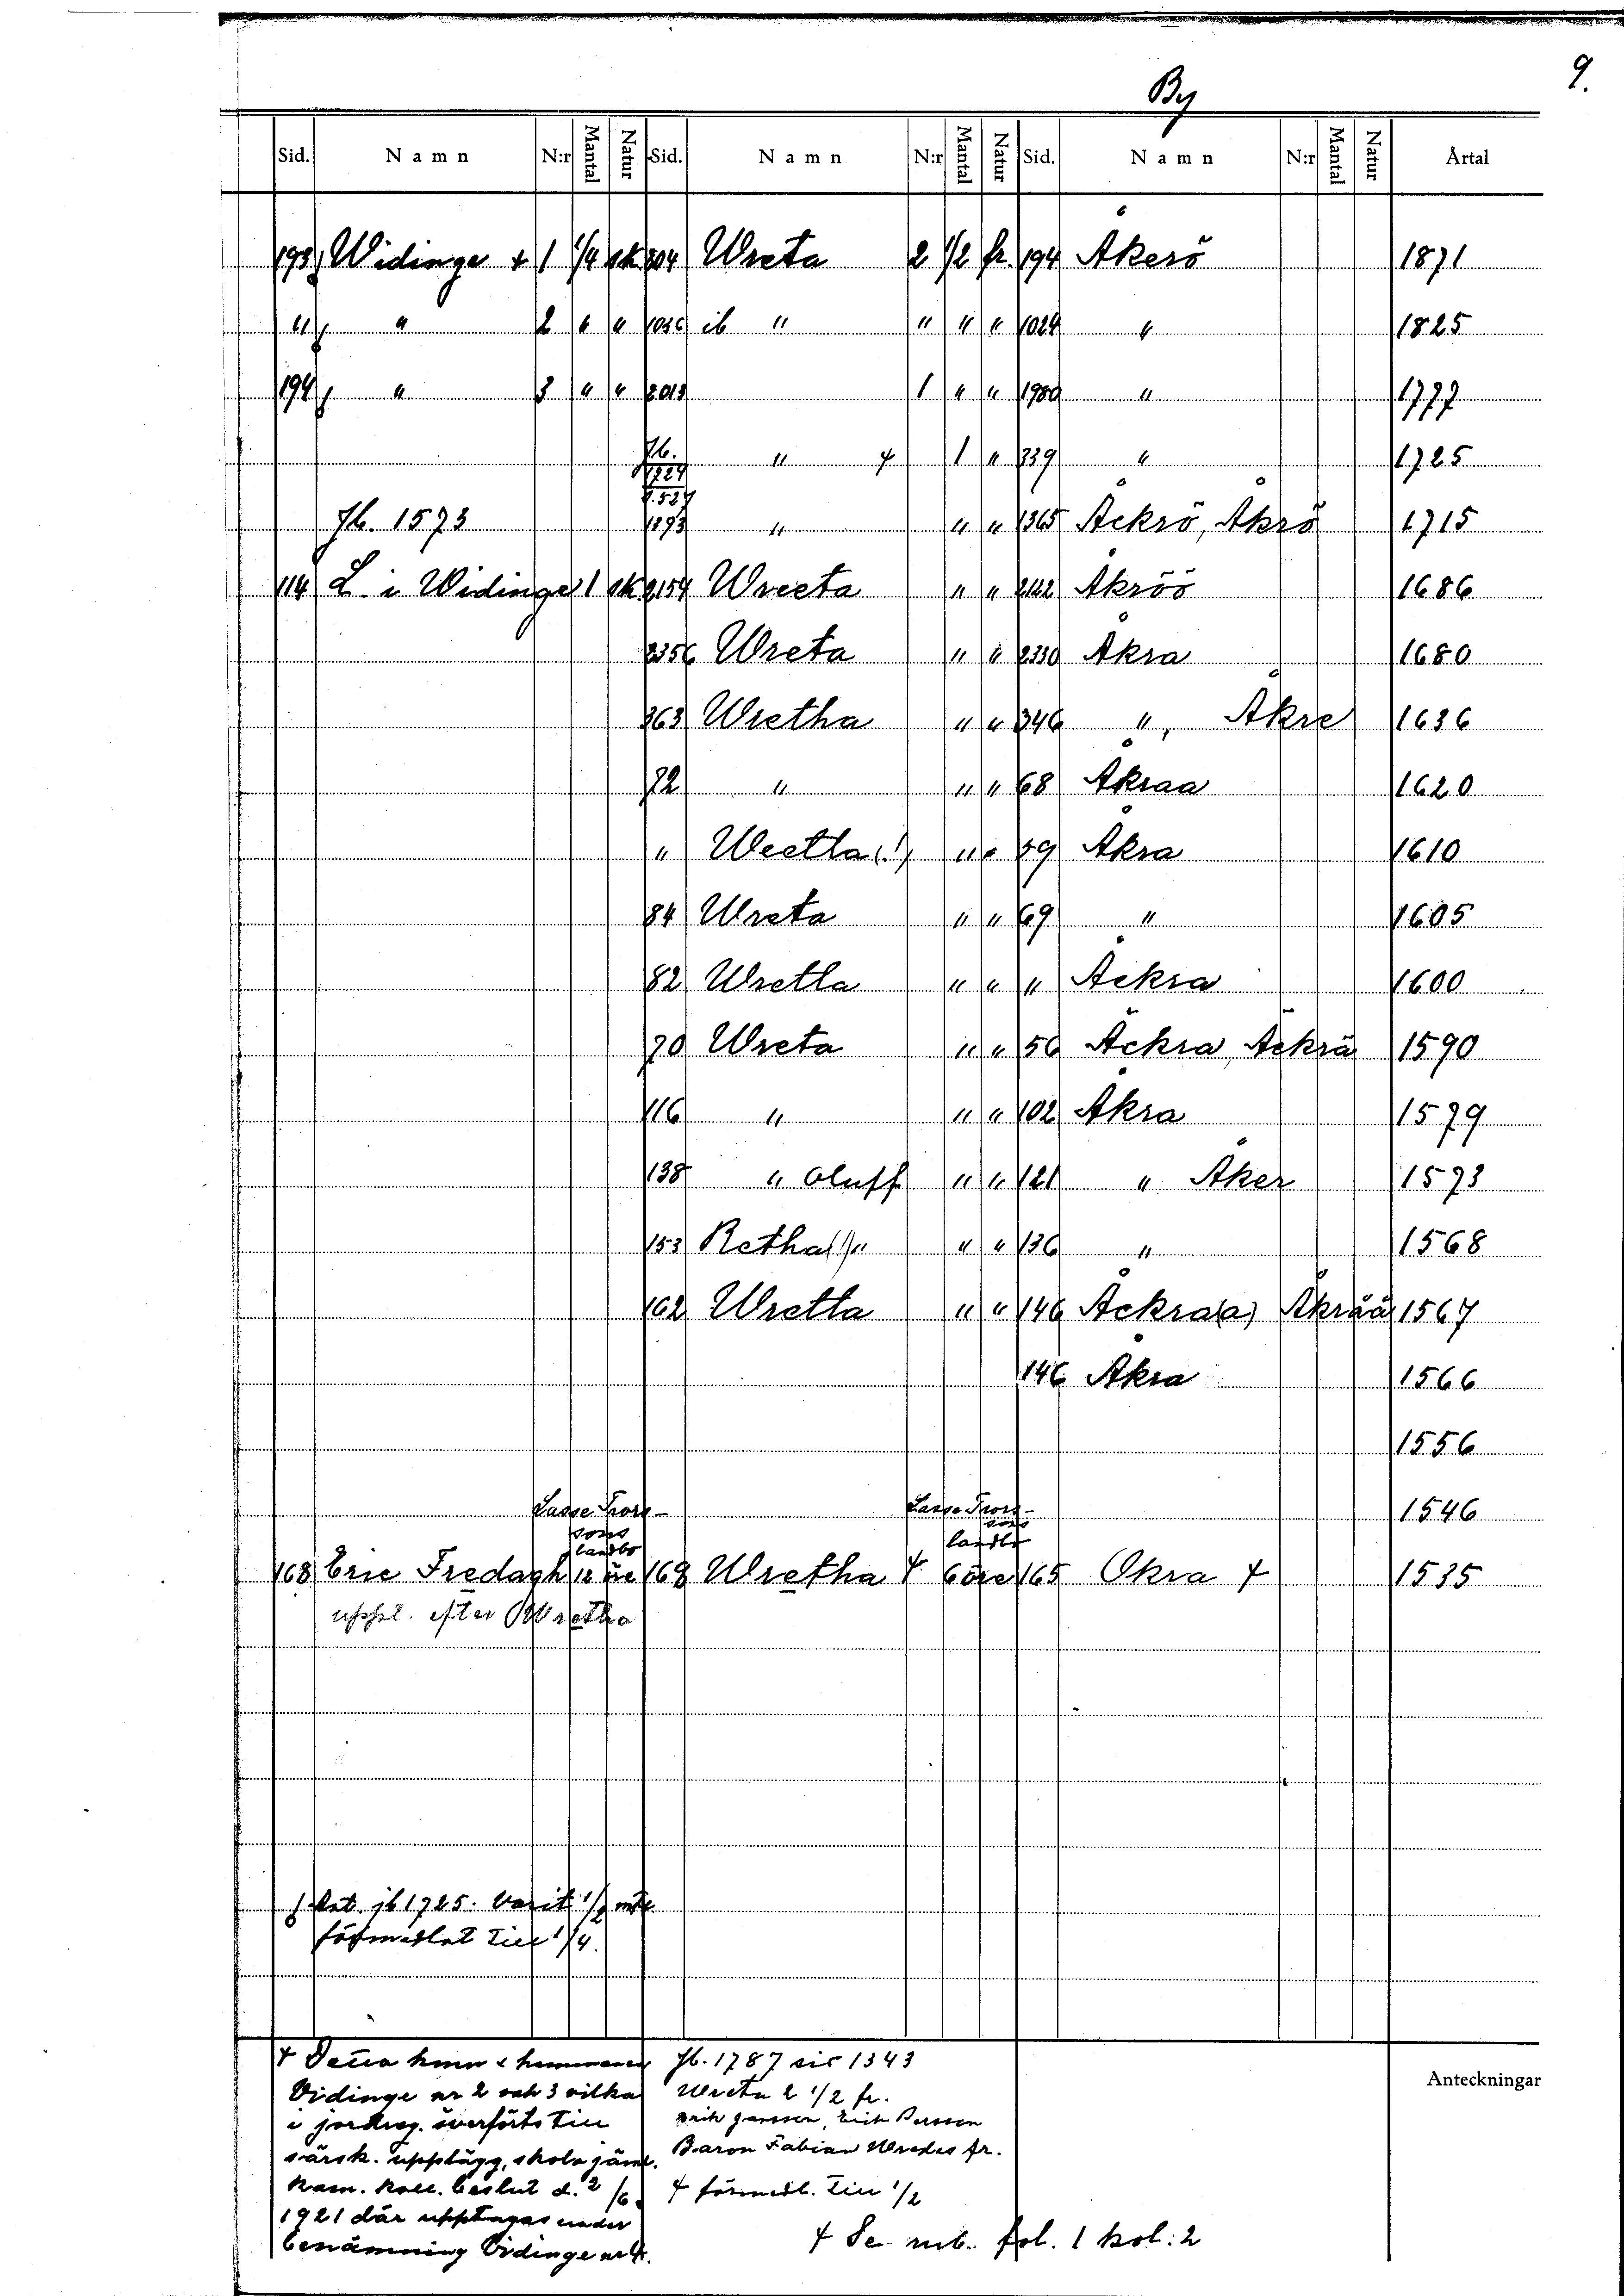 9.
By
Sid. Namn N:r Mantal Natur Sid. Namn N:r Mantal Natur Sid. Namn N:r Mantal Natur Årtal
193 Widinge + 1 1/4 sk 204 Wreta 2 1/2 fr. 194 Åkerö 1871
" " 2 " " 1036 ib " " " " 1024 " 1825
194 " 3 " " 2013 1 " " 1980 " 1777
Jb. 1724 s. 527 " + 1 " 339 " 1725
Jb. 1573 1893 " " " 1365 Åckrö, Åkrö 1715
114 L. i Widinge 1 sk 2154 Wreeta " " 2142 Akröö 1686
2356 Wreta " " 2330 Åkra 1680
363 Wretha " " 346 ", Åkre 1636
72 " " " 68 Åkraa 1620
" Weetla (!) " " 59 Åkra 1610
84 Wreta " " 69 " 1605
82 Wretla " " " Åckra 1600
70 Wreta " " 56 Äckra, Äckrä 1590
116 " " " 102 Åkra 1579
138 " Oluff " " 121 " Åker 1573
153 Retha (!) " " " 136 " 1568
162 Wretla " " 146 Åckra(a) Åkrää 1567
146 Åkra 1566
1556
Lasse Trors- Lasse Trors- 1546
sons sons
landbo landbo
168 Eric Fredagh 12 öre 168 Wretha + 6 öre 165 Okra + 1535
uppt. efter Wretha
jb 1725. Varit 1/2 mtl
förmedlat till 1/4.
+ Detta hmn & hemmanen
Vidinge nr 2 och 3 vilka
i jordreg. överförts till
särsk. upplägg, skola jäml.
Kam. koll. beslut d. 2/6
1921 där upptagas under
benämning Vidinge nr 4.
Jb. 1787 sid 1343
Wreta 2 1/2 fr.
Erik Jansson, Erich Persson
Baron Fabian Wredes fr.
+ förmedl. till 1/2
+ Se rub. fol. 1 kol: 2
Anteckningar